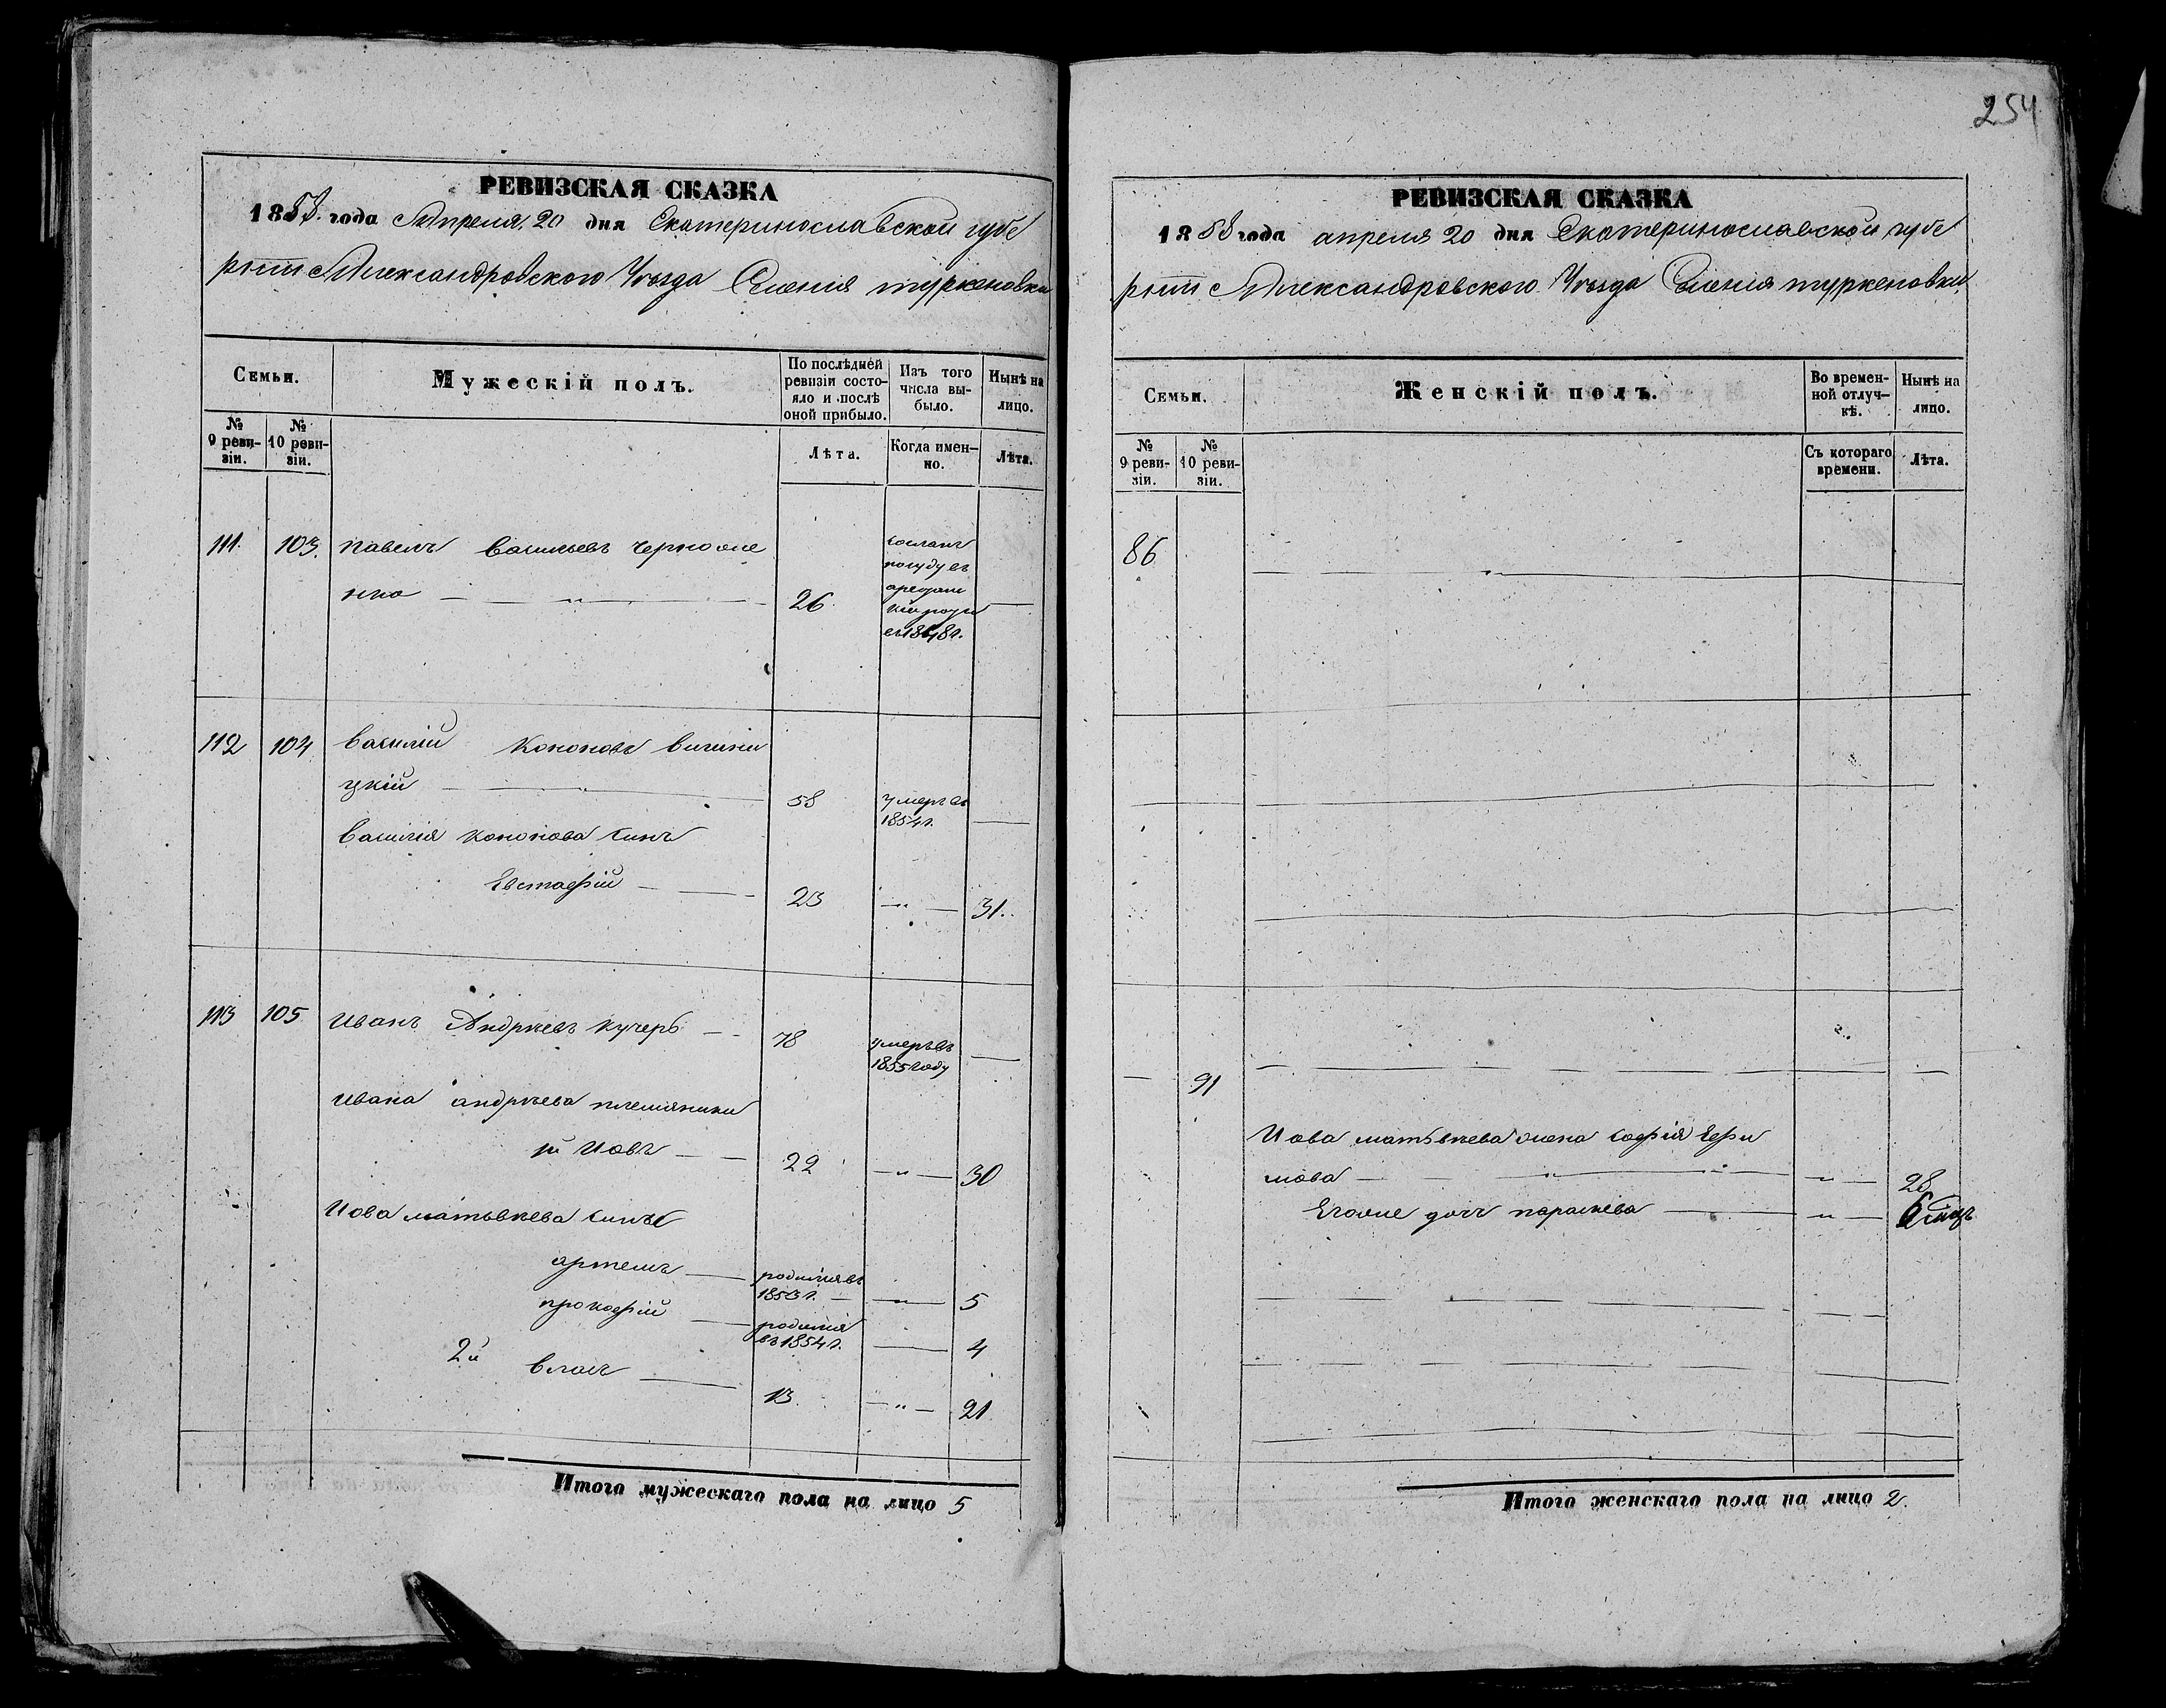 254
РЕВИЗСКАЯ СКАЗКА
1858. года Апреля 20 дня Екатеринославской губе
рнии Александровского Уѣзда Селенія туркеновки
Семьи.
Мужескій полъ.
По послѣдней ревизіи состояло и послѣ оной прибыло.
Изъ того числа выбыло.
Нынѣ на лицо.
№ 9 ревизіи.
№ 10 ревизіи.
Лѣта.
Когда именно.
Лѣта.
111. 103. павелъ Васильевъ черноме
нко — „ — 26. —
сосланъ
посуду въ
арестан
въ 1848 г.
112 104 Василій Кононовъ
цкій — 58 умеръ въ 1854 г. —
Василія кононова сынъ
Евстафій — 23 — „ — 31.
113 105 Иванъ Андрѣевъ кучеръ — 78 умеръ въ 1855 году —
Ивана андрѣева племяники
1й Иовъ — 22 — „ — 30
Иова матвѣева сыны
артемъ — родился въ 1853 г. — „ — 5
прокофій — родился въ 1854 г. — 4
2й власъ — 13. — „ — 21
Итого мужескаго пола на лицо 5
РЕВИЗСКАЯ СКАЗКА
1858 года апреля 20 дня Екатеринославской губе
рнии Александровского Уѣзда Селенія туркеновки
Семьи.
Женскій полъ.
Во временной отлучкѣ.
Нынѣ на лицо.
№ 9 ревизіи.
№ 10 ревизіи.
Съ котораго времени.
Лѣта.
86 — „ —
91
Иова матвѣева жена софія Ефи
мова — „ — „ — 28
Егоже дочь параскева — „ — 6 мѣсяцъ
Итого женскаго пола на лицо 2.